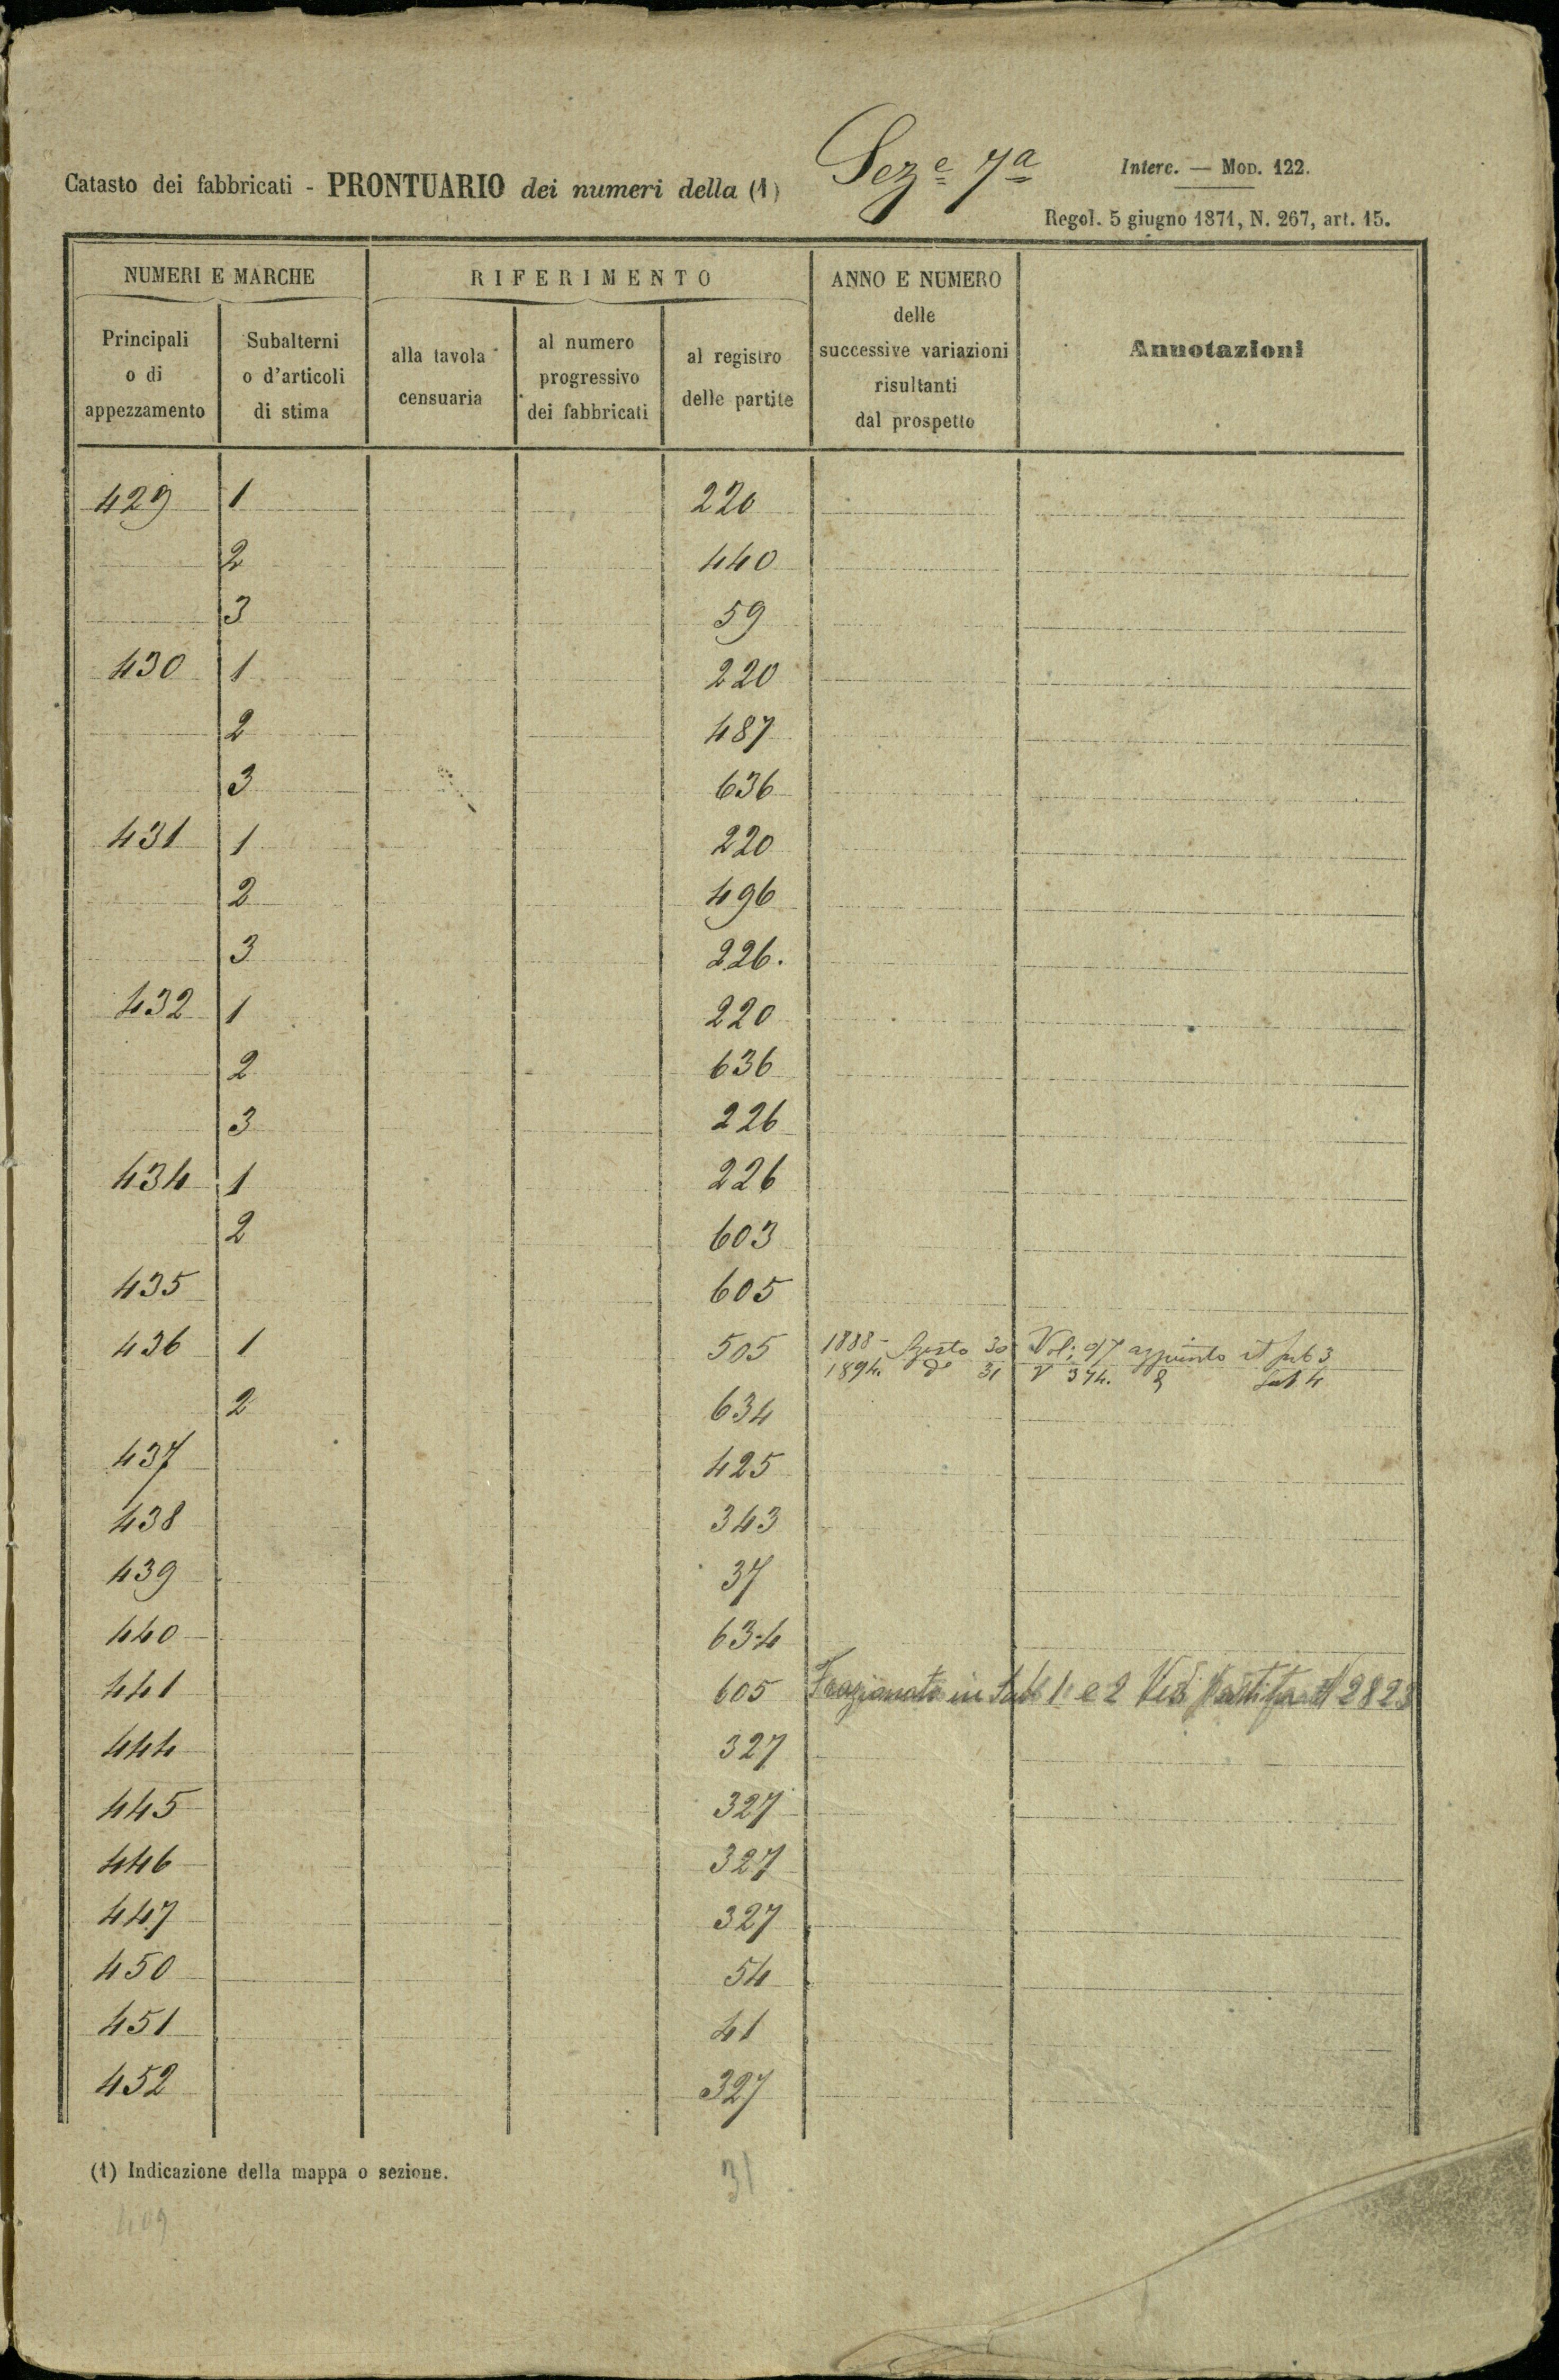 Catasto dei fabbricati - PRONTUARIO dei numeri della (1) Sez.e 7a
Interc. — Mod. 122.
Regol. 5 giugno 1871, N. 267, art. 15.
NUMERI E MARCHE
RIFERIMENTO
ANNO E NUMERO
delle
successive variazioni
risultanti
dal prospetto
Annotazioni
Principali
o di
appezzamento
Subalterni
o d'articoli
di stima
alla tavola
censuaria
al numero
progressivo
dei fabbricati
al registro
delle partite
429 1 220
2 440
3 59
430 1 220
2 487
3 636
431 1 220
2 496
3 226.
432 1 220
2 636
3 226
434 1 226
2 603
435 605
436 1 505 1888 30 Vol: 97 sub 3
1894. do 31 V 374. sub 4
2 634
437 425
438 343
439 37
440 634
441 605 Frazionato in Sub 1 e 2 Vedi Partita 2823
444 327
445 327
446 327
447 327
450 54
451 41
452 327
(1) Indicazione della mappa o sezione.
31
409